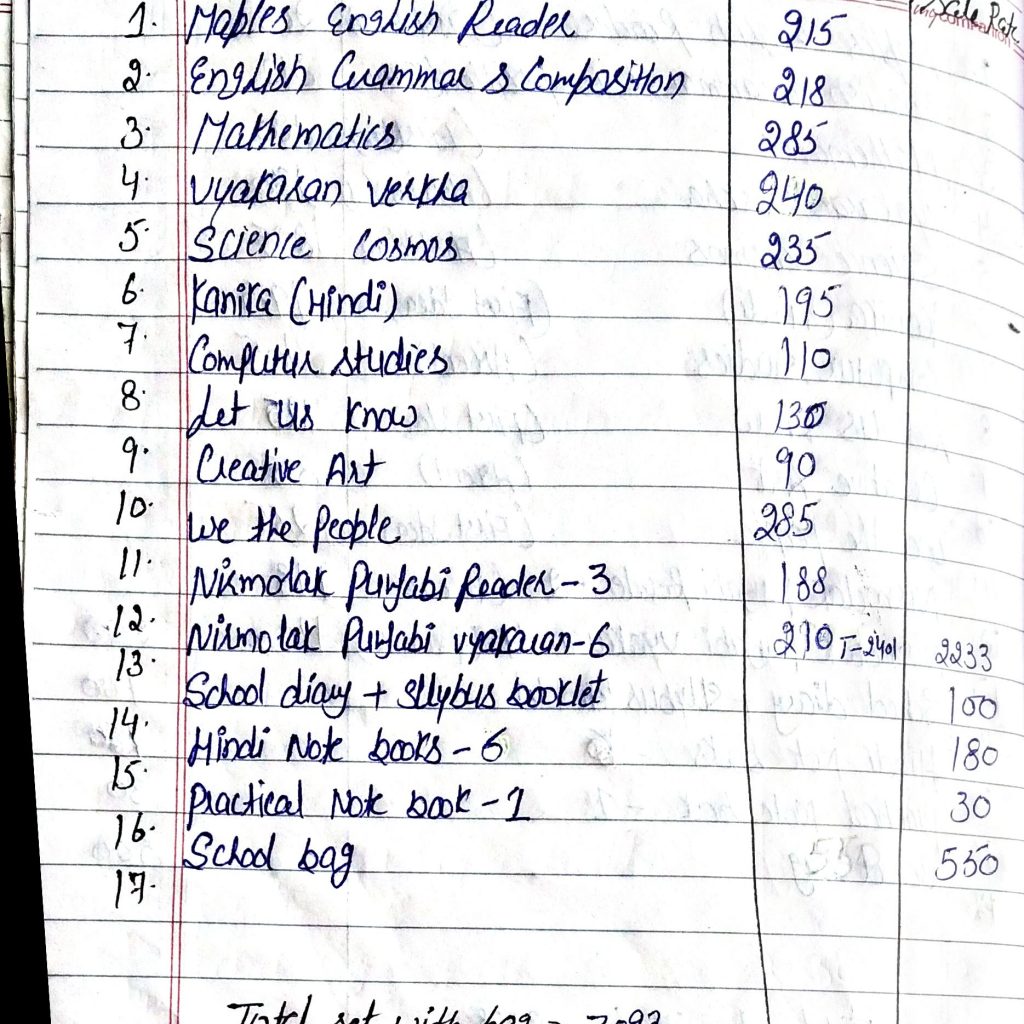 Sale Rate
1. Maples English Reader 215
2. English Grammar & Composition 218
3. Mathematics 285
4. Vyakaran Verkha 240
5. Science Cosmos 235
6. Kanika (Hindi) 195
7. Computer studies 110
8. Let Us Know 130
9. Creative Art 90
10. We the People 285
11. Nirmolak Punjabi Reader - 3 188
12. Nirmolak Punjabi vyakaran - 6 210 T-2401 2233
13. School diary + sllybus booklet 100
14. Hindi Note books - 6 180
15. Practical Note book - 1 30
16. School bag 550
17.
Total set with bag =